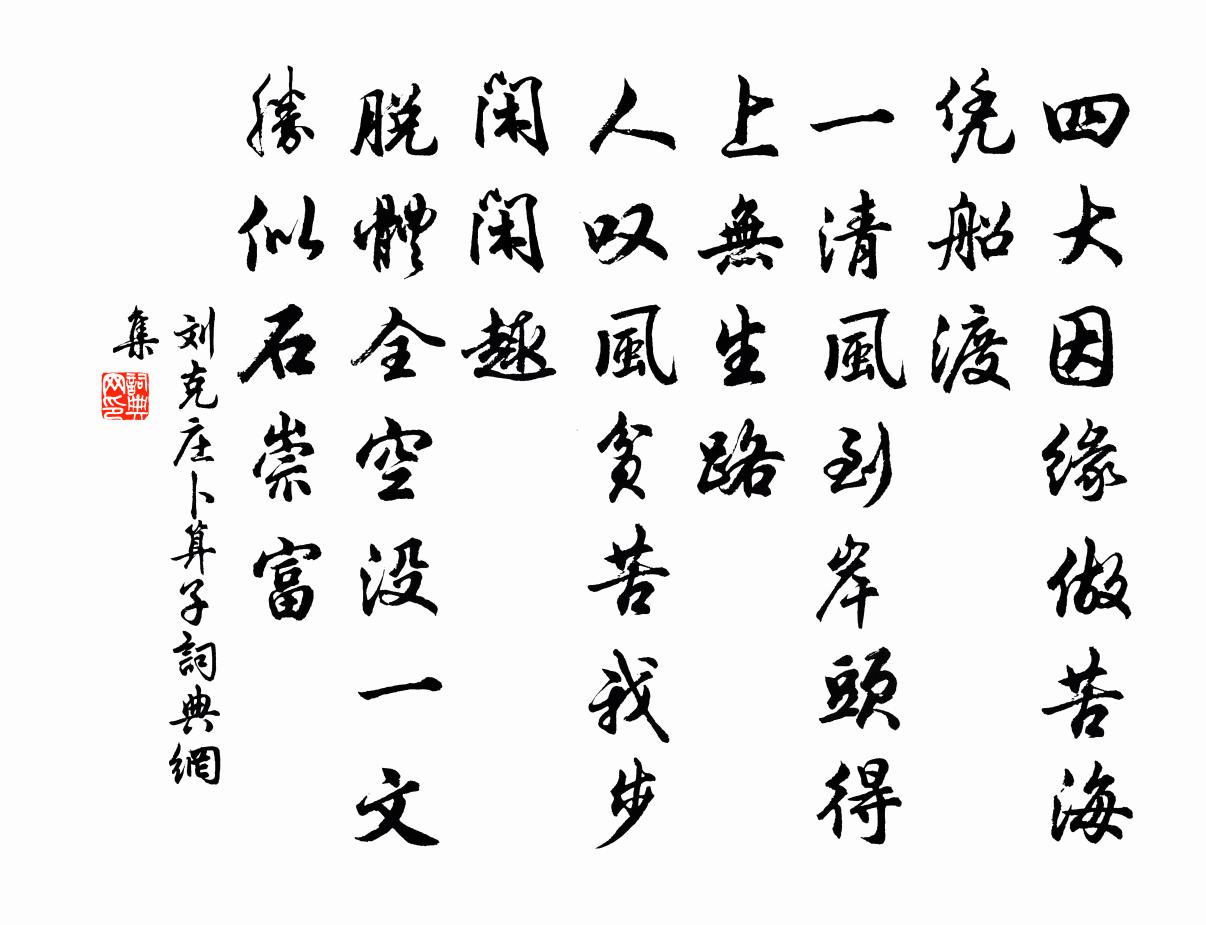 四大因缘做苦海
凭船渡
一清風到岸頭得
上無生路
人叹風贫苦我步
闲闲趣
脱體全空没一文
勝似石崇富
刘克庄卜算子詞典網
集
詞典网印